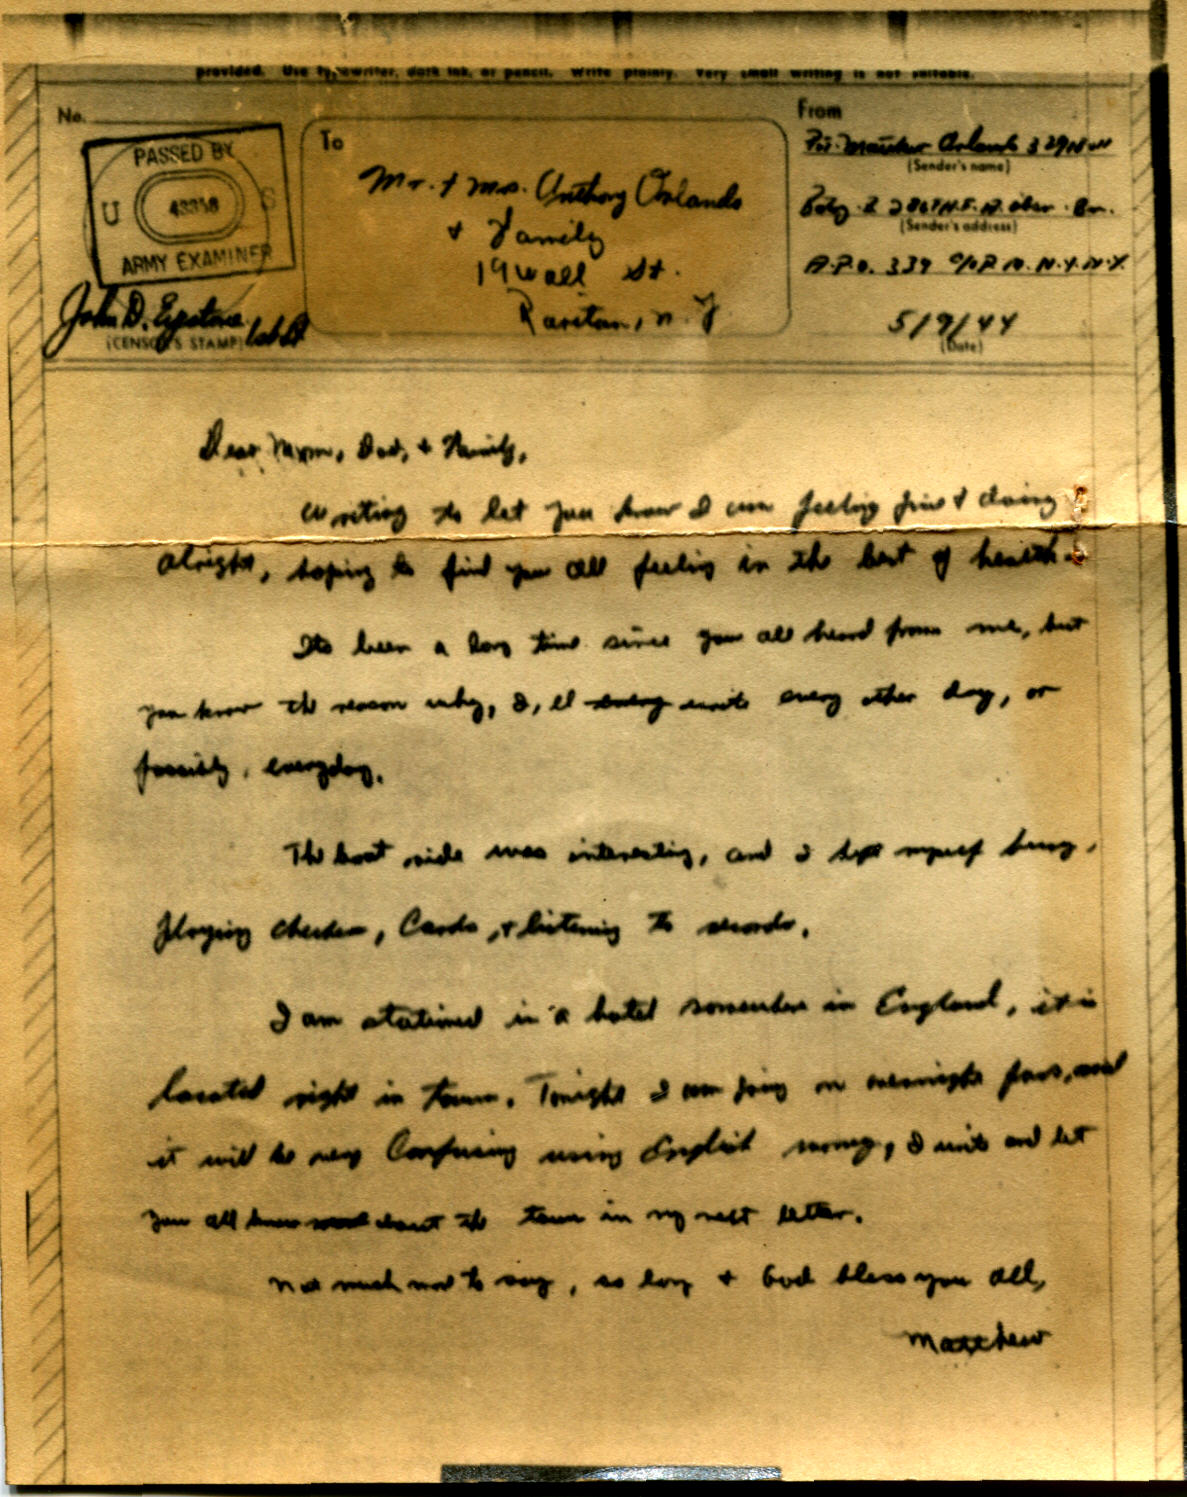 provided. Use typewriter, dark ink, or pencil. Write plainly. Very small writing is not suitable.
No.
PASSED BY
U S
ARMY EXAMINER
John D.
(CENSOR'S STAMP)
To
Mr. & Mrs. Anthony Orlando
& Family
19 Wall St.
Raritan, N. J
From
Pvt. Matthew Orlando
(Sender's name)
(Sender's address)
A.P.O. 339 c/o P.M. N.Y. N.Y.
5/9/44
(Date)
Dear Mom, Dad, & Family,
Writing to let you know I am feeling fine & doing
alright, hoping to find you all feeling in the best of health.
Its been a long time since you all heard from me, but
you know the reason why, I,ll every write every other day, or
possibly, everyday.
The boat ride was interesting, and I kept myself busy,
playing checkers, Cards, & listening to records.
I am stationed in a hotel somewhere in England, it is
located right in town. Tonight I am going on overnight pass, and
it will be very Confusing using English money, I write and let
you all know about the town in my next letter.
Not much more to say, so long & God bless you all,
Matthew